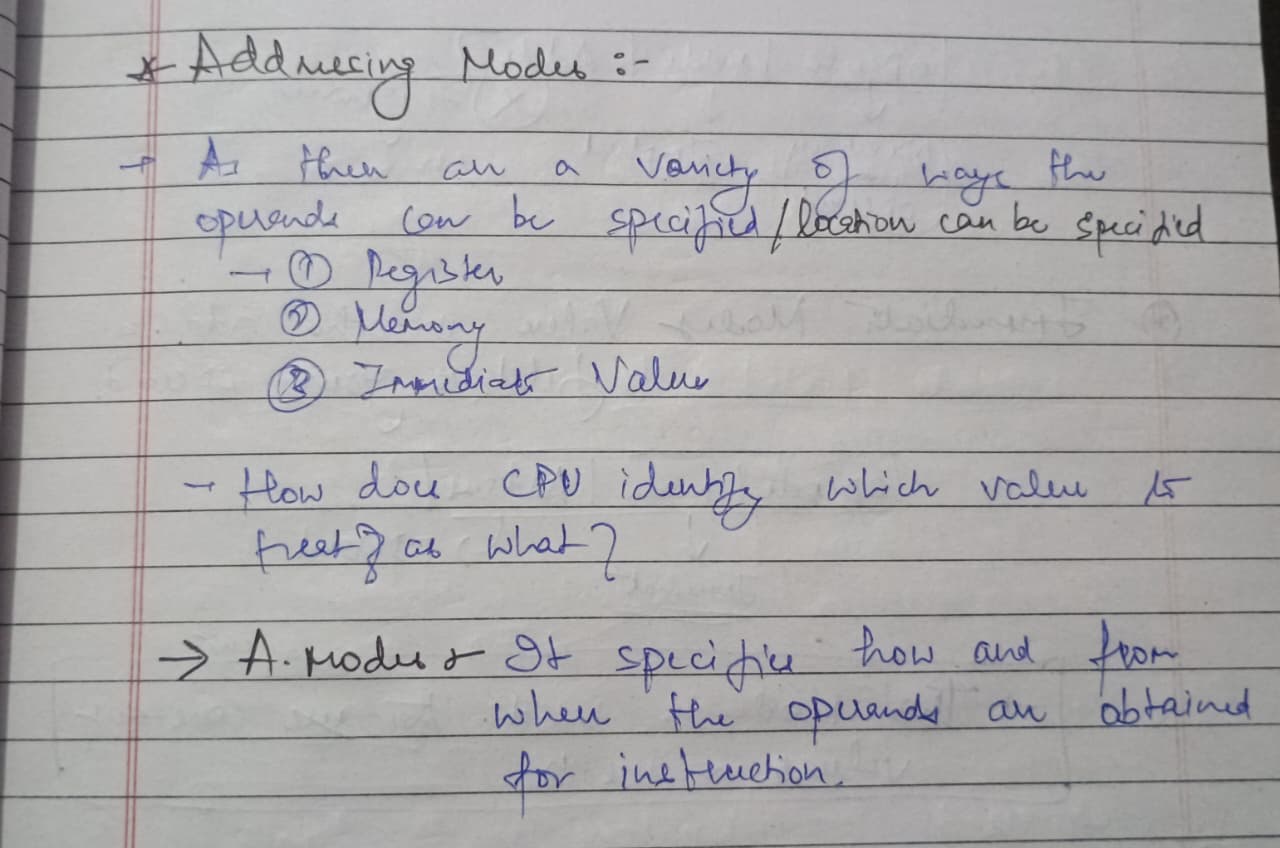 * Addressing Modes :-
→ As there are a variety of ways the
operands can be specified / location can be specified
→ ① Register
② Memory
③ Immediate Value
- How does CPU identify which value is
treat as what?
→ A. modes → It specifies how and from
where the operands are obtained
for instruction.